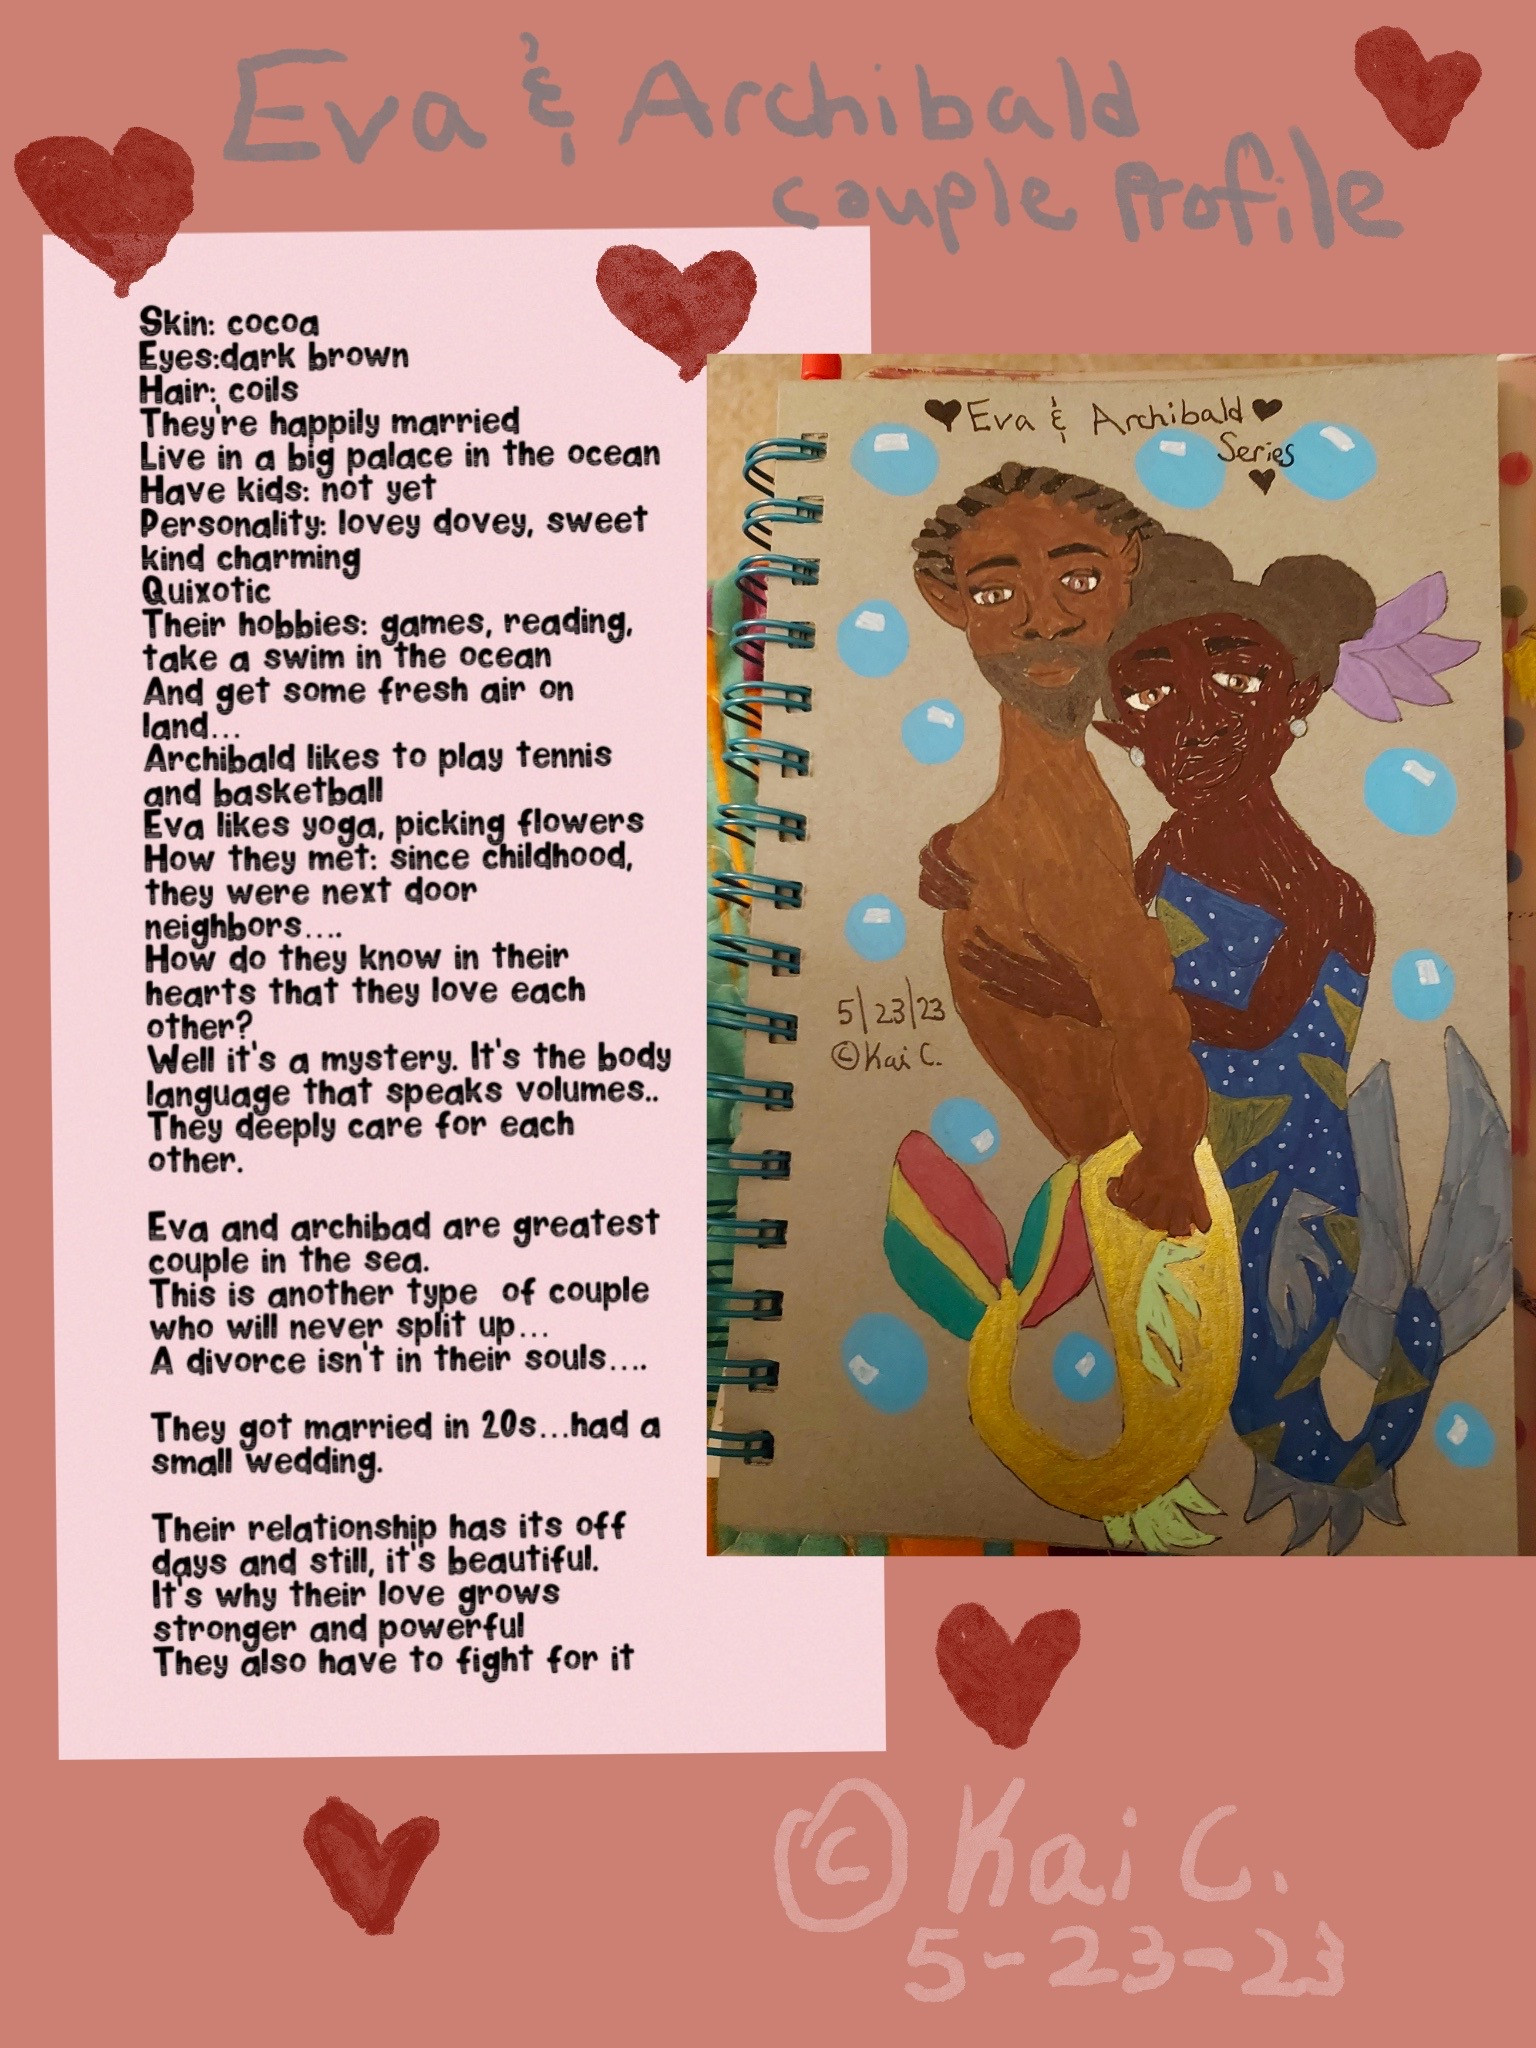 Eva & Archibald
couple Profile
Skin: cocoa
Eyes:dark brown
Hair: coils
They're happily married
Live in a big palace in the ocean
Have kids: not yet
Personality: lovey dovey, sweet
kind charming
Quixotic
Their hobbies: games, reading,
take a swim in the ocean
And get some fresh air on
land...
Archibald likes to play tennis
and basketball
Eva likes yoga, picking flowers
How they met: since childhood,
they were next door
neighbors....
How do they know in their
hearts that they love each
other?
Well it's a mystery. It's the body
language that speaks volumes..
They deeply care for each
other.
Eva and archibad are greatest
couple in the sea.
This is another type  of couple
who will never split up...
A divorce isn't in their souls....
They got married in 20s...had a
small wedding.
Their relationship has its off
days and still, it's beautiful.
It's why their love grows
stronger and powerful
They also have to fight for it
♥Eva & Archibald♥
Series
♥
5/23/23
©Kai C.
©Kai C.
5-23-23